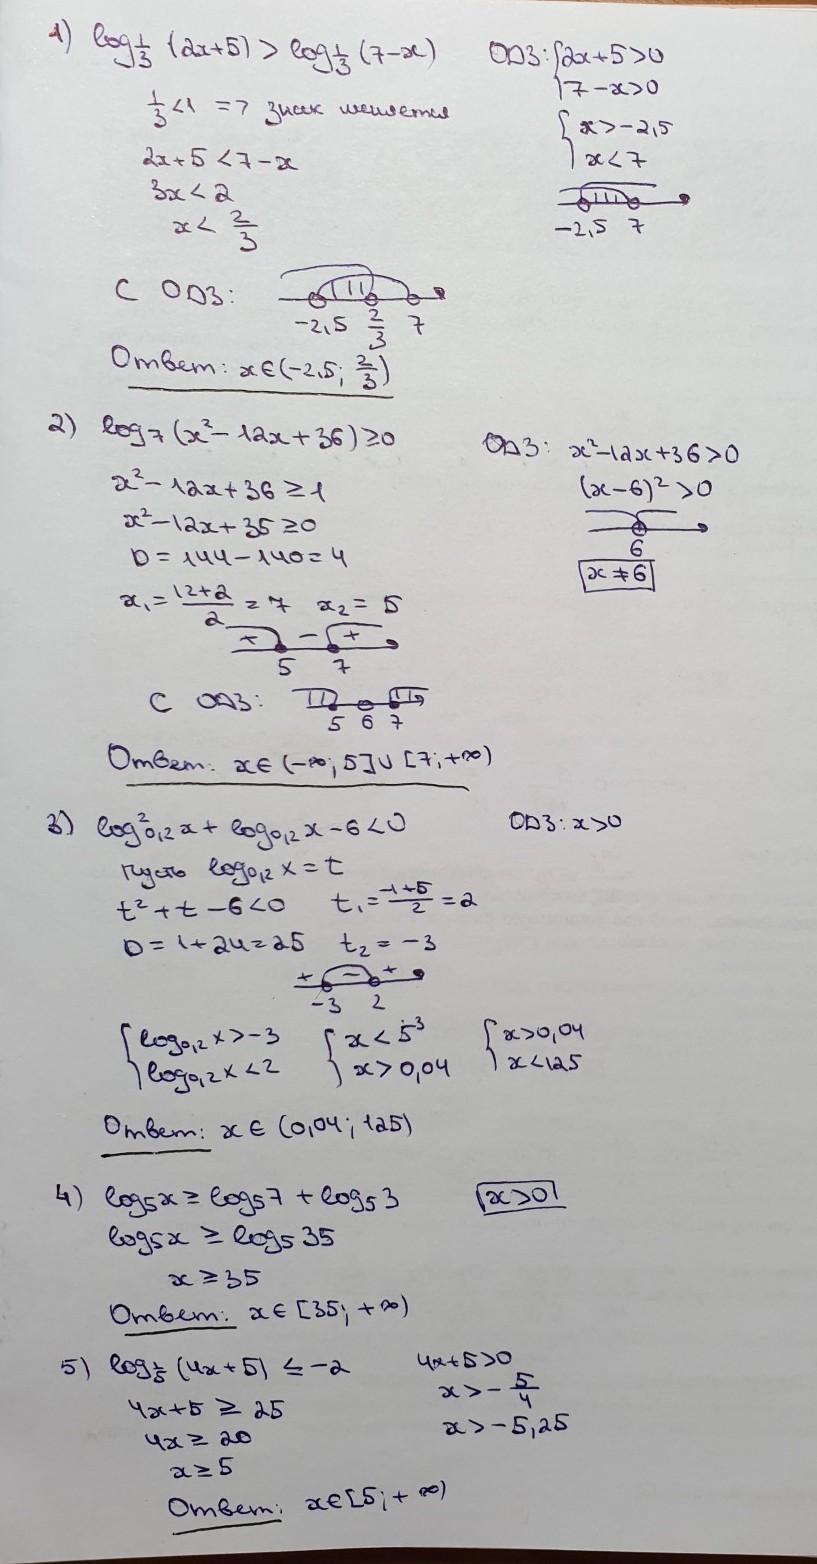 1) log_{1/3} (2x+5) > log_{1/3} (7-x)
ОДЗ: {2x+5>0
7-x>0
1/3 <1 => знак меняется
{x>-2,5
x<7
2x+5 <7-x
3x<2
x< 2/3
-2,5 7
С ОДЗ:
-2,5 2/3 7
Ответ: x∈(-2,5; 2/3)
2) log_7 (x²-12x+36)≥0
ОДЗ: x²-12x+36>0
(x-6)²>0
6
x≠6
x²-12x+36≥1
x²-12x+35≥0
D=144-140=4
x_1=(12+2)/2=7 x_2=5
+ - +
5 7
С ОДЗ:
5 6 7
Ответ: x∈(-∞;5]∪[7;+∞)
3) log²_{0,2} x + log_{0,2} x-6<0
ОДЗ: x>0
Пусть log_{0,2} x=t
t²+t-6<0 t_1=(-1+5)/2=2
D=1+24=25 t_2=-3
+ - +
-3 2
{log_{0,2} x>-3 {x<5³ {x>0,04
log_{0,2} x<2 x>0,04 x<125
Ответ: x∈(0,04; 125)
4) log_5 x≥log_5 7 + log_5 3
x>0
log_5 x ≥ log_5 35
x≥35
Ответ: x∈[35; +∞)
5) log_{1/5} (4x+5) ≤-2
4x+5>0
x>-5/4
x>-5,25
4x+5 ≥ 25
4x≥ 20
x≥5
Ответ: x∈[5;+∞)